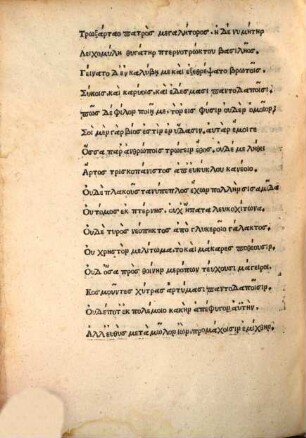 Τρωξάρταο πατρὸς μεγαλήτορος. ἡ δέ νυ μήτηρ
Λειχομύλη θυγάτηρ πτερνοτρώκτου βασιλῆος.
Γείνατο δ' ἐν καλύβῃ με καὶ ἐξεθρέψατο βρωτοῖς.
Σύκοις καὶ καρύοις καὶ ἐδέσμασι παντοδαποῖσι.
πῶς δὲ φίλον ποιῇ με. τὸν εἰς φύσιν οὐδὲν ὁμοῖον.
Σοὶ μὲν γὰρ βίος ἐστὶν ἐν ὕδασιν. αὐτὰρ ἐμοί γε
Ὅσσα παρ' ἀνθρώποις τρώγειν ἔθος. οὐδέ με λήθει
Ἄρτος τρισκοπάνιστος ἀπ' εὐκύκλου κανέοιο
Οὐδὲ πλακοῦς τανύπεπλος ἔχων πολλὴν σισαμῖδα
Οὐ τόμος ἐκ πτέρνης. οὐχ ἥπατα λευκοχίτωνα.
Οὐδὲ τυρὸς νεόπηκτος ἀπὸ γλυκεροῖο γάλακτος.
Οὐ χρηστὸν μελίτωμα. τὸ καὶ μάκαρες ποθέουσιν.
Οὐδ' ὅσα πρὸς θοίνην μερόπων τεύχουσι μάγειροι.
Κοσμοῦντες χύτρας ἀρτύμασι παντοδαποῖσιν.
Οὐδέποτ' ἐκ πολέμοιο κακὴν ἀπέφυγον ἀϋτήν.
Ἀλλ' εὐθὺς μετὰ μῶλον ἰὼν προμάχοισιν ἐμίχθην.